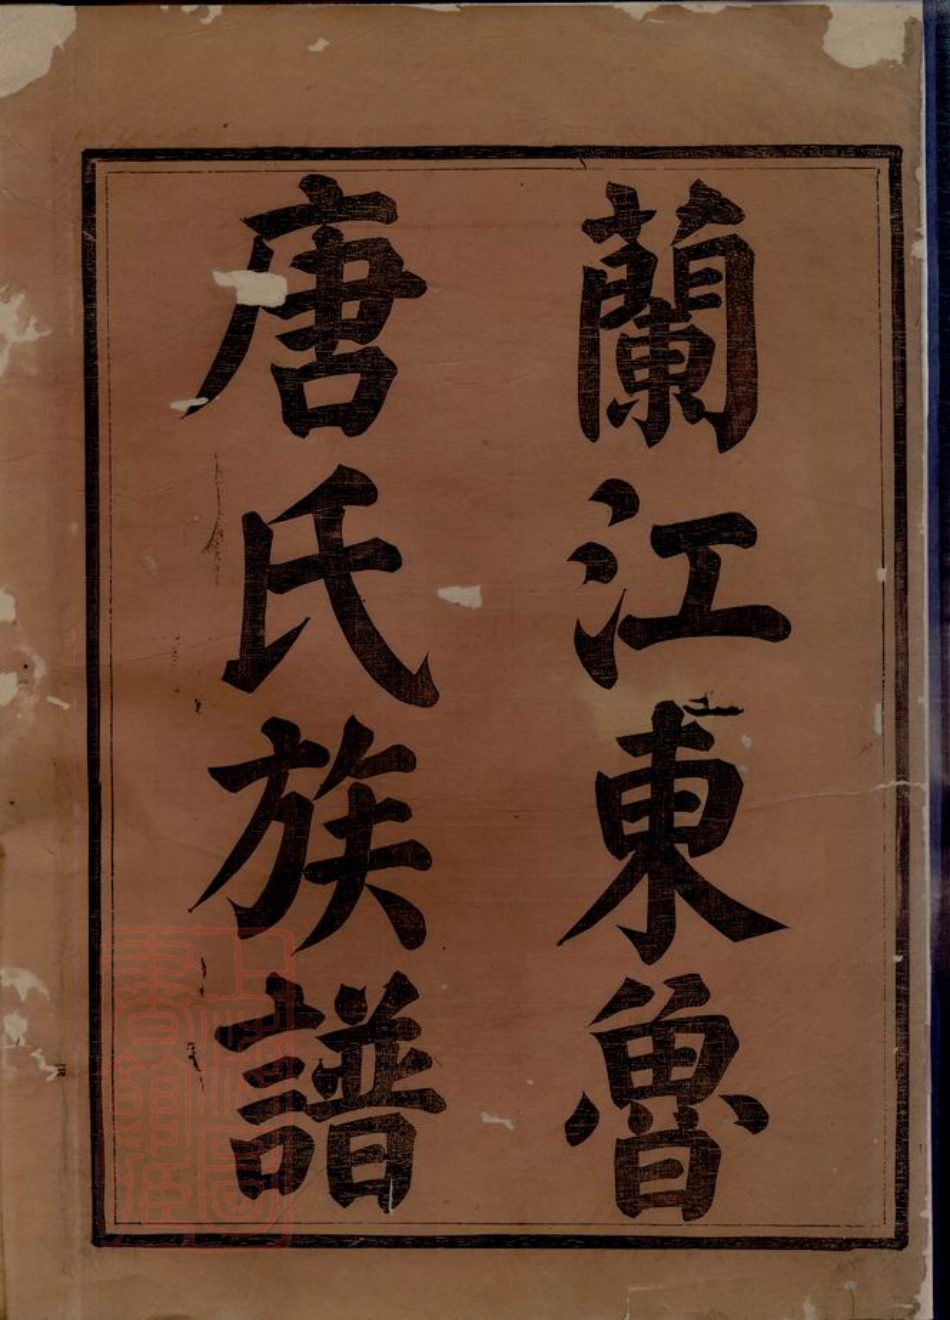 蘭江東魯
唐氏族譜